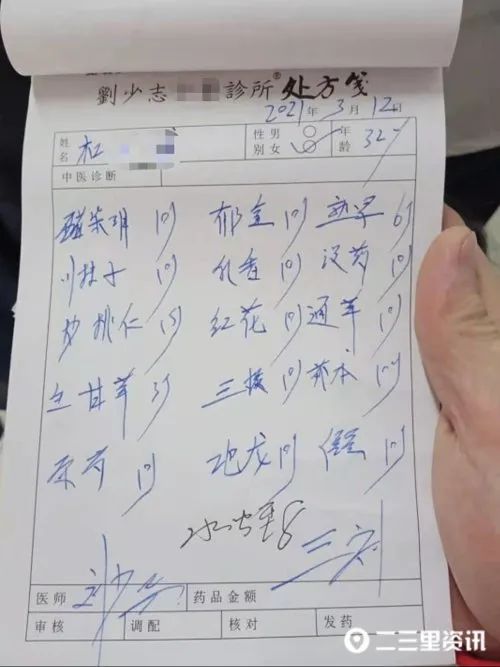 劉少志 診所®处方笺
2021年3月12日
姓名 杜 性别 男 女 年龄 32
中医诊断
醋柴胡 10 郁金 10 熟旱 6
川楝子 10 乳香 10 没药 10
炒桃仁 15 红花 10 通草 10
生甘草 3 三棱 10 莪术 10
赤芍 10 地龙 10 10
水蛭 8
三剂
医师 刘少志 药品金额
审核 调配 核对 发药
二三里资讯